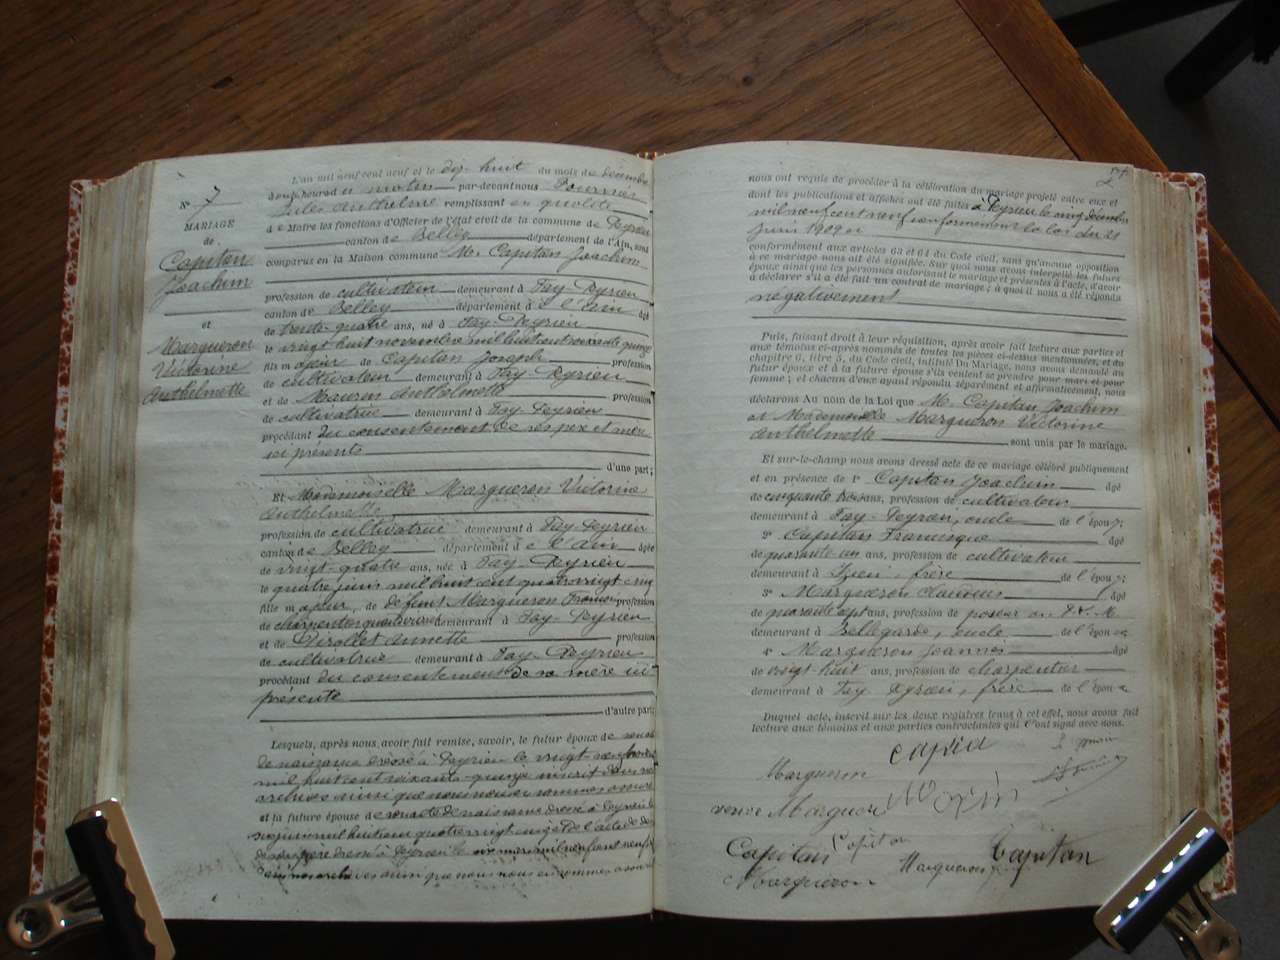 N° 7
MARIAGE
de
Capitan
Joachim
et
Margueron
Victorine
Anthelmette
L'an mil neuf cent neuf et le dix-huit du mois de décembre
heures du matin par-devant nous Fournier
Jules Anthelme remplissant en qualité
de Maire les fonctions d'Officier de l'état civil de la commune de Peyrieu
canton de Belley département de l'Ain, sont
comparus en la Maison commune M. Capitan Joachim
profession de cultivateur demeurant à Fay-Peyrieu
canton de Belley département de l'Ain âgé
de trente-quatre ans, né à Fay-Peyrieu
le vingt huit novembre mil huit cent soixante quinze
fils majeur de Capitan Joseph profession
de cultivateur demeurant à Fay-Peyrieu
et de Maurin Anthelmette profession
de cultivatrice demeurant à Fay-Peyrieu
procédant du consentement de ses père et mère
ici présents
d'une part ;
Et Mademoiselle Margueron Victorine
Anthelmette
profession de cultivatrice demeurant à Fay-Peyrieu
canton de Belley département de l'Ain âgée
de vingt-quatre ans, née à Fay-Peyrieu
le quatre juin mil huit cent quatre vingt cinq
fille majeure, de défunt Margueron profession
de charpentier demeurant à Fay-Peyrieu
et de Annette profession
de cultivatrice demeurant à Fay-Peyrieu
procédant du consentement de sa mère ici
présente
d'autre part
Lesquels, après nous avoir fait remise, savoir, le futur époux de son acte
de naissance dressé à Peyrieu le vingt-neuf novembre
mil huit cent soixante-quinze inscrit dans nos
archives ainsi que nous nous en sommes assuré
et la future épouse de son acte de naissance dressé à Peyrieu le
six juin mil huit cent quatre vingt cinq et de l'acte de décès
de son père dressé à Peyrieu le mars mil neuf cent neuf
dans nos archives ainsi que nous nous en sommes assuré
nous ont requis de procéder à la célébration du mariage projeté entre eux et
dont les publications et affiches ont été faites à Peyrieu le cinq décembre
mil neuf cent neuf conformément à la loi du 21
juin 1909
conformément aux articles 63 et 64 du Code civil, sans qu'aucune opposition
à ce mariage nous ait été signifiée. Sur quoi nous avons interpellé les futurs
époux ainsi que les personnes autorisant le mariage et présentes à l'acte, d'avoir
à déclarer s'il a été fait un contrat de mariage ; à quoi il nous a été répondu
négativement
Puis, faisant droit à leur réquisition, après avoir fait lecture aux parties et
aux témoins ci-après nommés de toutes les pièces ci-dessus mentionnées, et du
chapitre 6, titre 5, du Code civil, intitulé Du Mariage, nous avons demandé au
futur époux et à la future épouse s'ils veulent se prendre pour mari et pour
femme ; et chacun d'eux ayant répondu séparément et affirmativement, nous
déclarons Au nom de la Loi que M. Capitan Joachim
et Mademoiselle Margueron Victorine
Anthelmette sont unis par le mariage.
Et sur-le-champ nous avons dressé acte de ce mariage célébré publiquement
et en présence de 1° Capitan Joachim âgé
de cinquante trois ans, profession de cultivateur
demeurant à Fay-Peyrieu, oncle de l'époux ;
2° Capitan Francisque âgé
de quarante un ans, profession de cultivateur
demeurant à Izieu, frère de l'époux ;
3° Margueron Claudius âgé
de quarante sept ans, profession de poseur au P. L. M.
demeurant à Bellegarde, oncle de l'épouse
4° Margueron Joannès âgé
de vingt huit ans, profession de charpentier
demeurant à Fay Peyrieu, frère de l'épouse
Duquel acte, inscrit sur les deux registres tenus à cet effet, nous avons fait
lecture aux témoins et aux parties contractantes qui l'ont signé avec nous.
Le maire
Margueron
veuve Margueron
Capitan
Capitan
Margueron
Capitan
Margueron